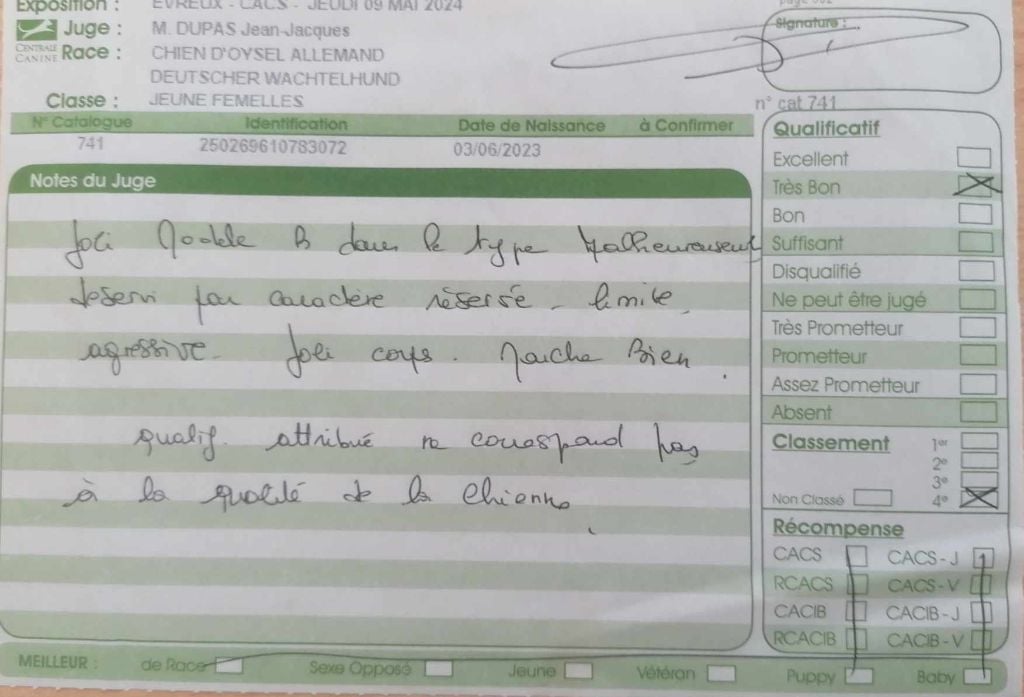 Exposition : EVREUX - CACS - JEUDI 09 MAI 2024
Juge : M. DUPAS Jean-Jacques
CENTRALE CANINE
Race : CHIEN D'OYSEL ALLEMAND
DEUTSCHER WACHTELHUND
Classe : JEUNE FEMELLES
Signature :
n° cat 741
N° Catalogue Identification Date de Naissance à Confirmer
741 250269610783072 03/06/2023
Notes du Juge
Joli Modele B dans le type Malheureusement
deservi par caractère réservé - limite
agressive - Joli corps . Marche Bien .
qualif. attribué ne correspond pas
à la qualité de la chienne
Qualificatif
Excellent
Très Bon
Bon
Suffisant
Disqualifié
Ne peut être jugé
Très Prometteur
Prometteur
Assez Prometteur
Absent
Classement 1er
2e
3e
Non Classé 4e
Récompense
CACS CACS-J
RCACS CACS-V
CACIB CACIB-J
RCACIB CACIB-V
MEILLEUR : de Race Sexe Opposé Jeune Vétéran Puppy Baby